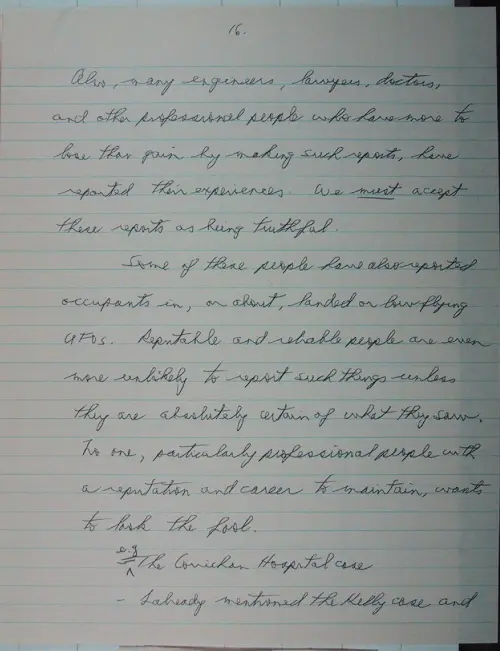 16.
Also, many engineers, lawyers, doctors,
and other professional people who have more to
lose than gain by making such reports, have
reported their experiences. We must accept
these reports as being truthful.
Some of these people have also reported
occupants in, or about, landed or low flying
UFOs. Reputable and reliable people are even
more unlikely to report such things unless
they are absolutely certain of what they saw.
No one, particularly professional people with
a reputation and career to maintain, wants
to look the fool.
e.g
The Cowichan Hospital case
- I already mentioned the Kelly case and